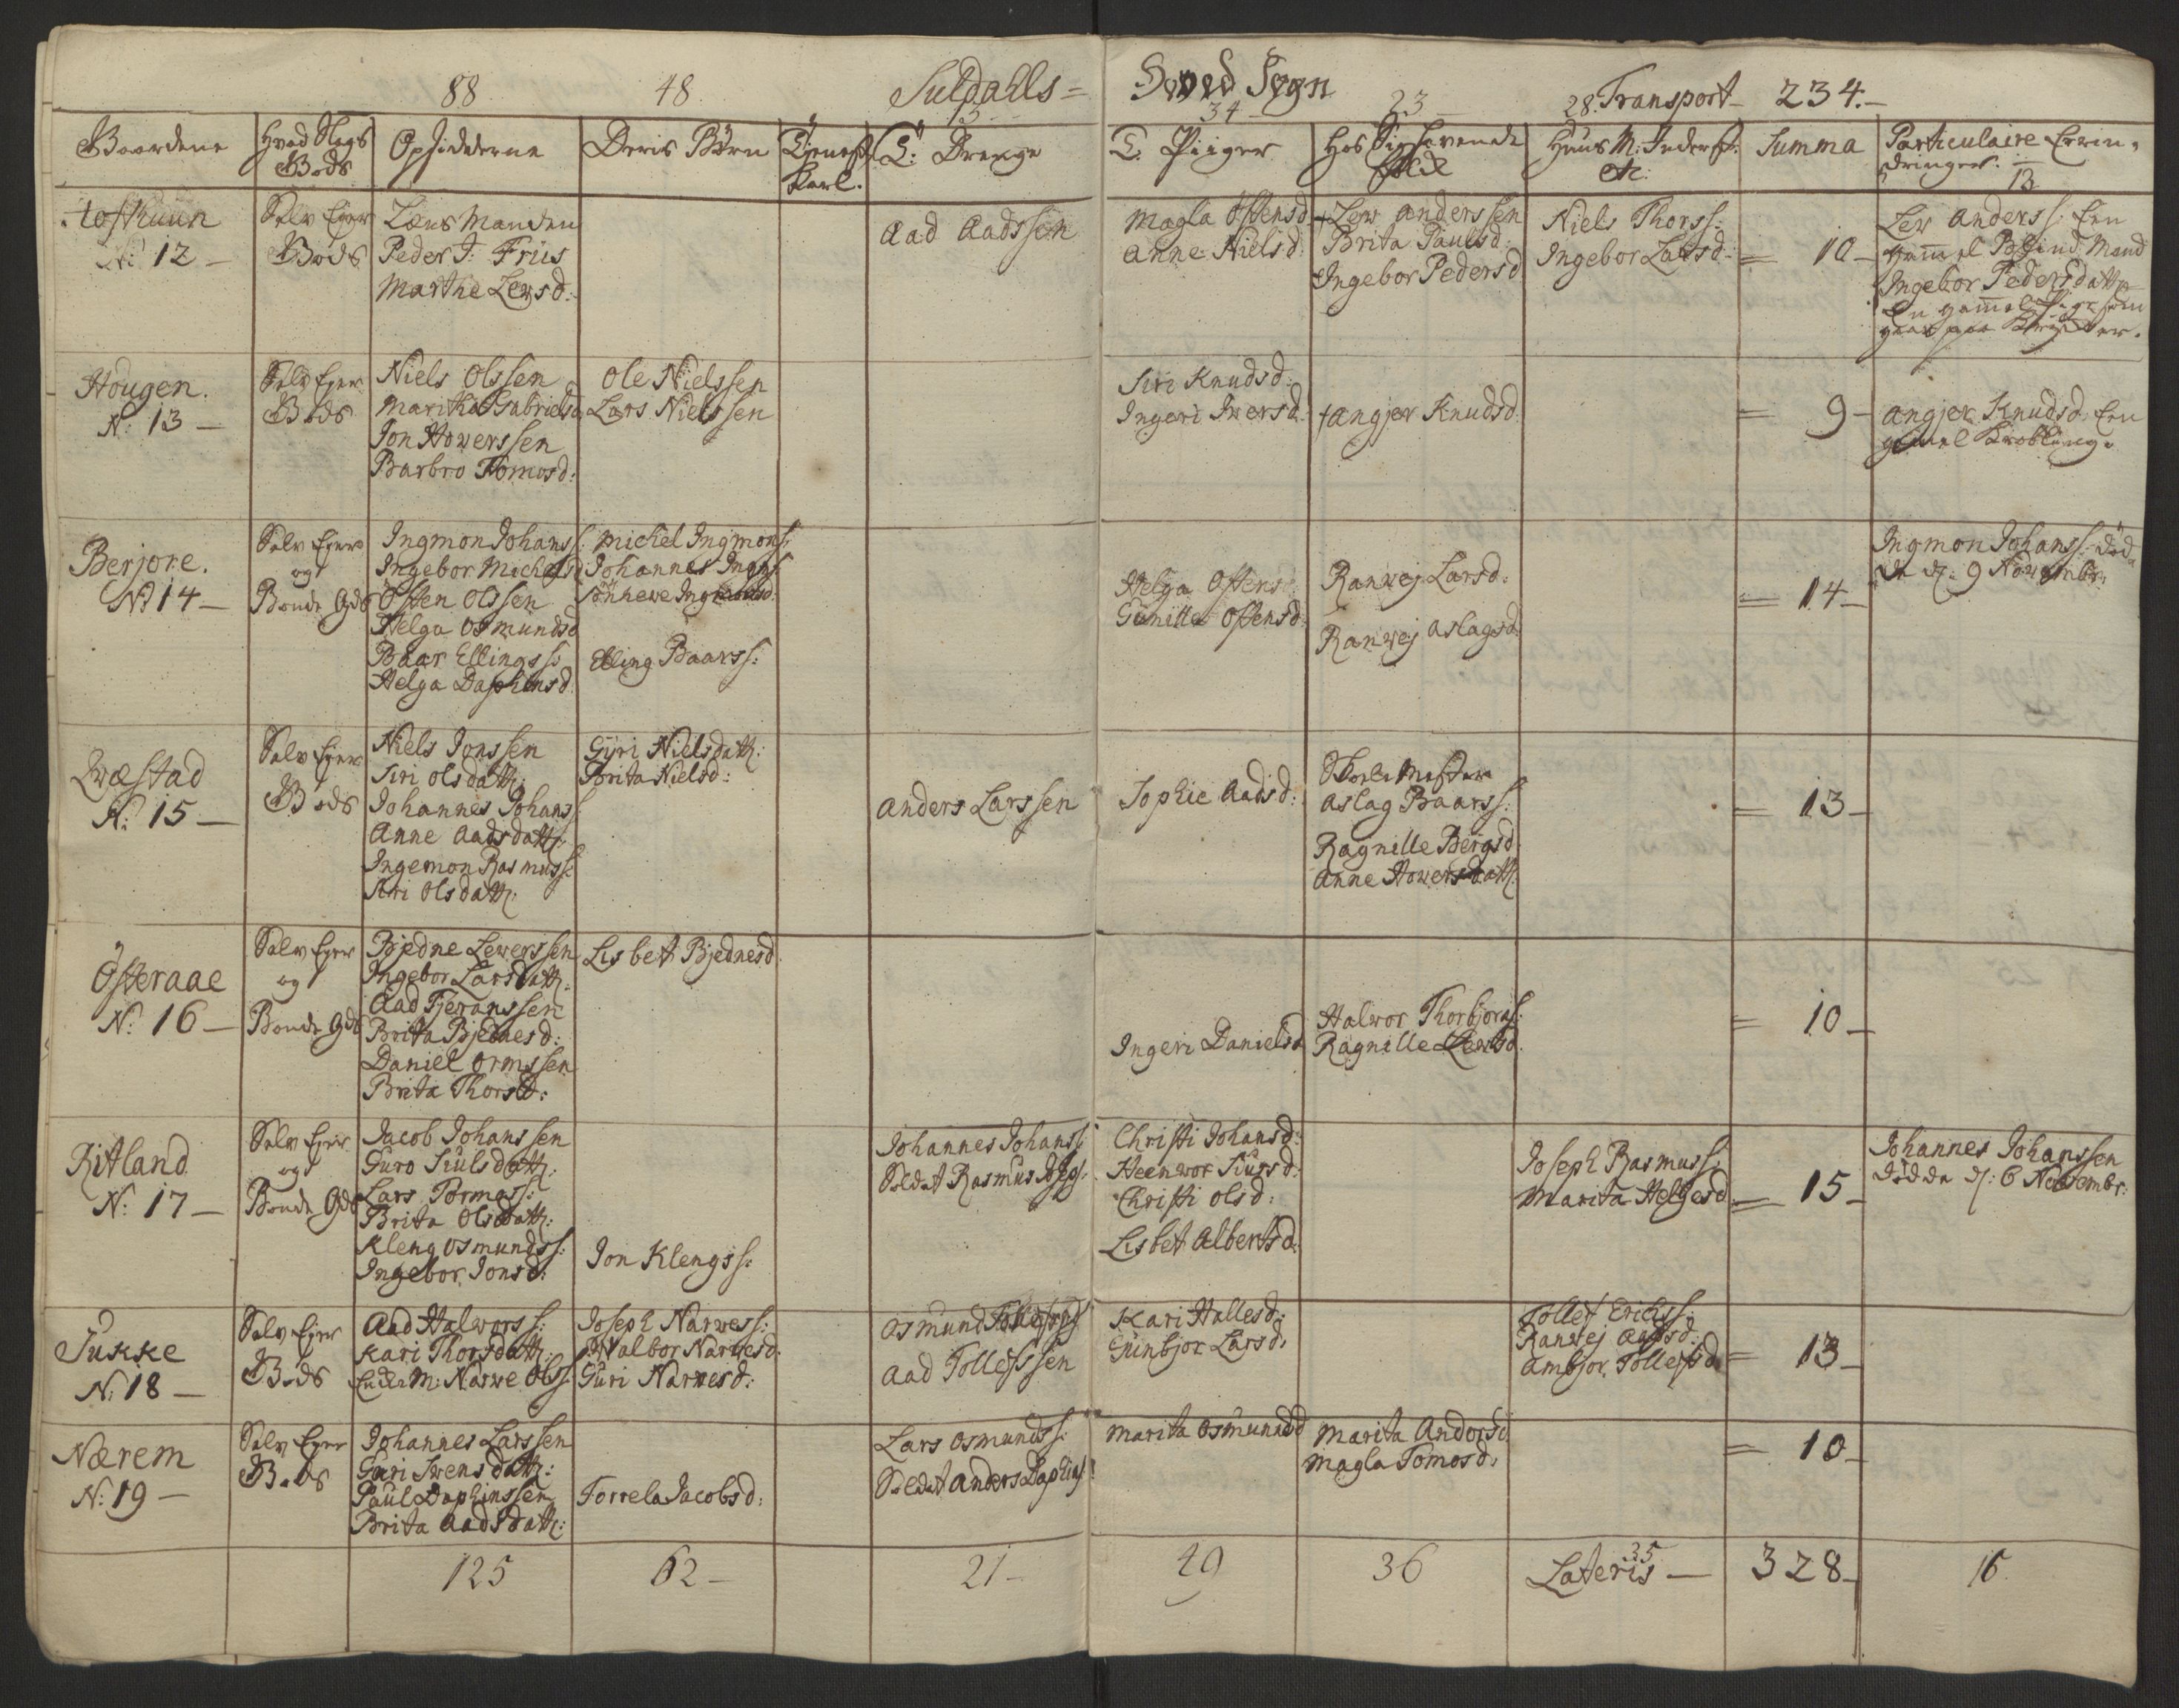 88 48 Suldahls= Hoved Sogn 28. Transport— 234.—
15— 34— 23—
Gaardene Hvad Slags Gods Opsidderne Deris Børn Tieneste Karl. T: Drenge T. Piiger Hos Sig havende folk Huus M: Inderst: etc: Summa Particulaire Erin-
dringer. 13
N: 12— Selv Ejer Gods
Lensmanden
Peder J: Friis
Marthe Lewsd:
Aad Aadssen
Magla Østensd:
Anne Nielsd:
Lew Anderssen
Brita Paulsd:
Ingebor Pedersd
Niels Thorss:
Ingebor Larsd:
= 10—
Lew Anderss: Een
gammel Blind Mand
Ingebor Pedersdatter
En gammel Pige som
gaar paa Krykker.
Hougen.
N: 13—
Selv Ejer
Gods
Niels Olssen
Maritha Gabrielsd
Jon Howerssen
Barbro Tomosd:
Ole Nielssen
Lars Nielssen
Siri Knudsd:
Ingeri Iversd:
+Angjer Knudsd:
= 9—
Angjer Knudsd. Een
gammel Krobling.
Berjore.
No 14—
Selv Ejer
og
Bonde Gods
Ingmon Johanss:
Ingebor Michelsd
Østen Olssen
Helga Osmundsd
Baar Ellingss:
Helga Daphinsd
Michel Ingmons:
Johannes Ingms
Sønnewe Ingmonsd:
Elling Baarss:
Helga Østens
Gunille Østensd:
Ranwej Larsd:
Ranwej Aslagsd:
= 14—
Ingmon Johanss: død-
de d: 9 Novembr:
Qwæstad
N: 15—
Selv Ejer
Gods
Niels Jonssen
Siri Olsdatt:
Johannes Johans:
Anne Aadsdatt:
Ingemon Rasmuss:
Siri Olsdatt:
Gyri Nielsdatt:
Brita Nielsd:
Anders Larssen
Sophie Aadsd:
Skolemester
Aslag Baarss:
Ragnille Børgsd
Anne Howersdatt:
= 13—
Østeraae
N: 16—
Selv Ejer
og
Bonde Gods
Bjedne Lewerssen
Ingebor Larsdatt:
Aad Tjeranssen
Brita Bjednesd:
Daniel Ormssen
Brita Thorsd:
Lisbet Bjednesd.
Ingeri Danielsd
Halwor Thorbjorns:
Ragnille Lewsd.
= 10—
Ritland
N: 17—
Selv Ejer
og
Bonde Gods
Jacob Johanssen
Guro Siulsdatt:
Lars Tormoss:
Brita Olsdatt:
Kleng Osmundss:
Ingebor Jonsd:
Jon Klengss:
Johannes Johans:
Soldat Rasmus Joseps:
Christi Johansd:
Heenwor Siursd:
Christi Olsd:
Lisbet Albertsd:
Joseph Rasmuss:
Marita Helgesd
= 15—
Johannes Johanssen
dødde d: 6 Novembr:
Sukke
N: 18—
Selv Ejer
Gods
Aad Halworss:
Kari Thorsdatt:
Enke M: Narwe Olss
Joseph Narwess:
Walbor Narwesd
Guri Narwesd:
Osmund Tollefsens
Aad Tollefssen
Kari Hallesd:
Gunbjor Larsd:
Tollef Erichss:
Ranwej Aadsd:
Ambjor Tollefsd
= 13—
Nærem
N: 19—
Selv Ejer
Gods
Johannes Larssen
Guri Swensdatt:
Paul Daphinssen
Brita Aadsdatt:
Torrela Jacobsd:
Lars Osmundss:
Soldat Anders Daphins:
Marita Osmundsd
Marita Andorsd
Magla Tomosd:
= 10—
125 62— 21— 49 36 35 Lateris— 328— 15.